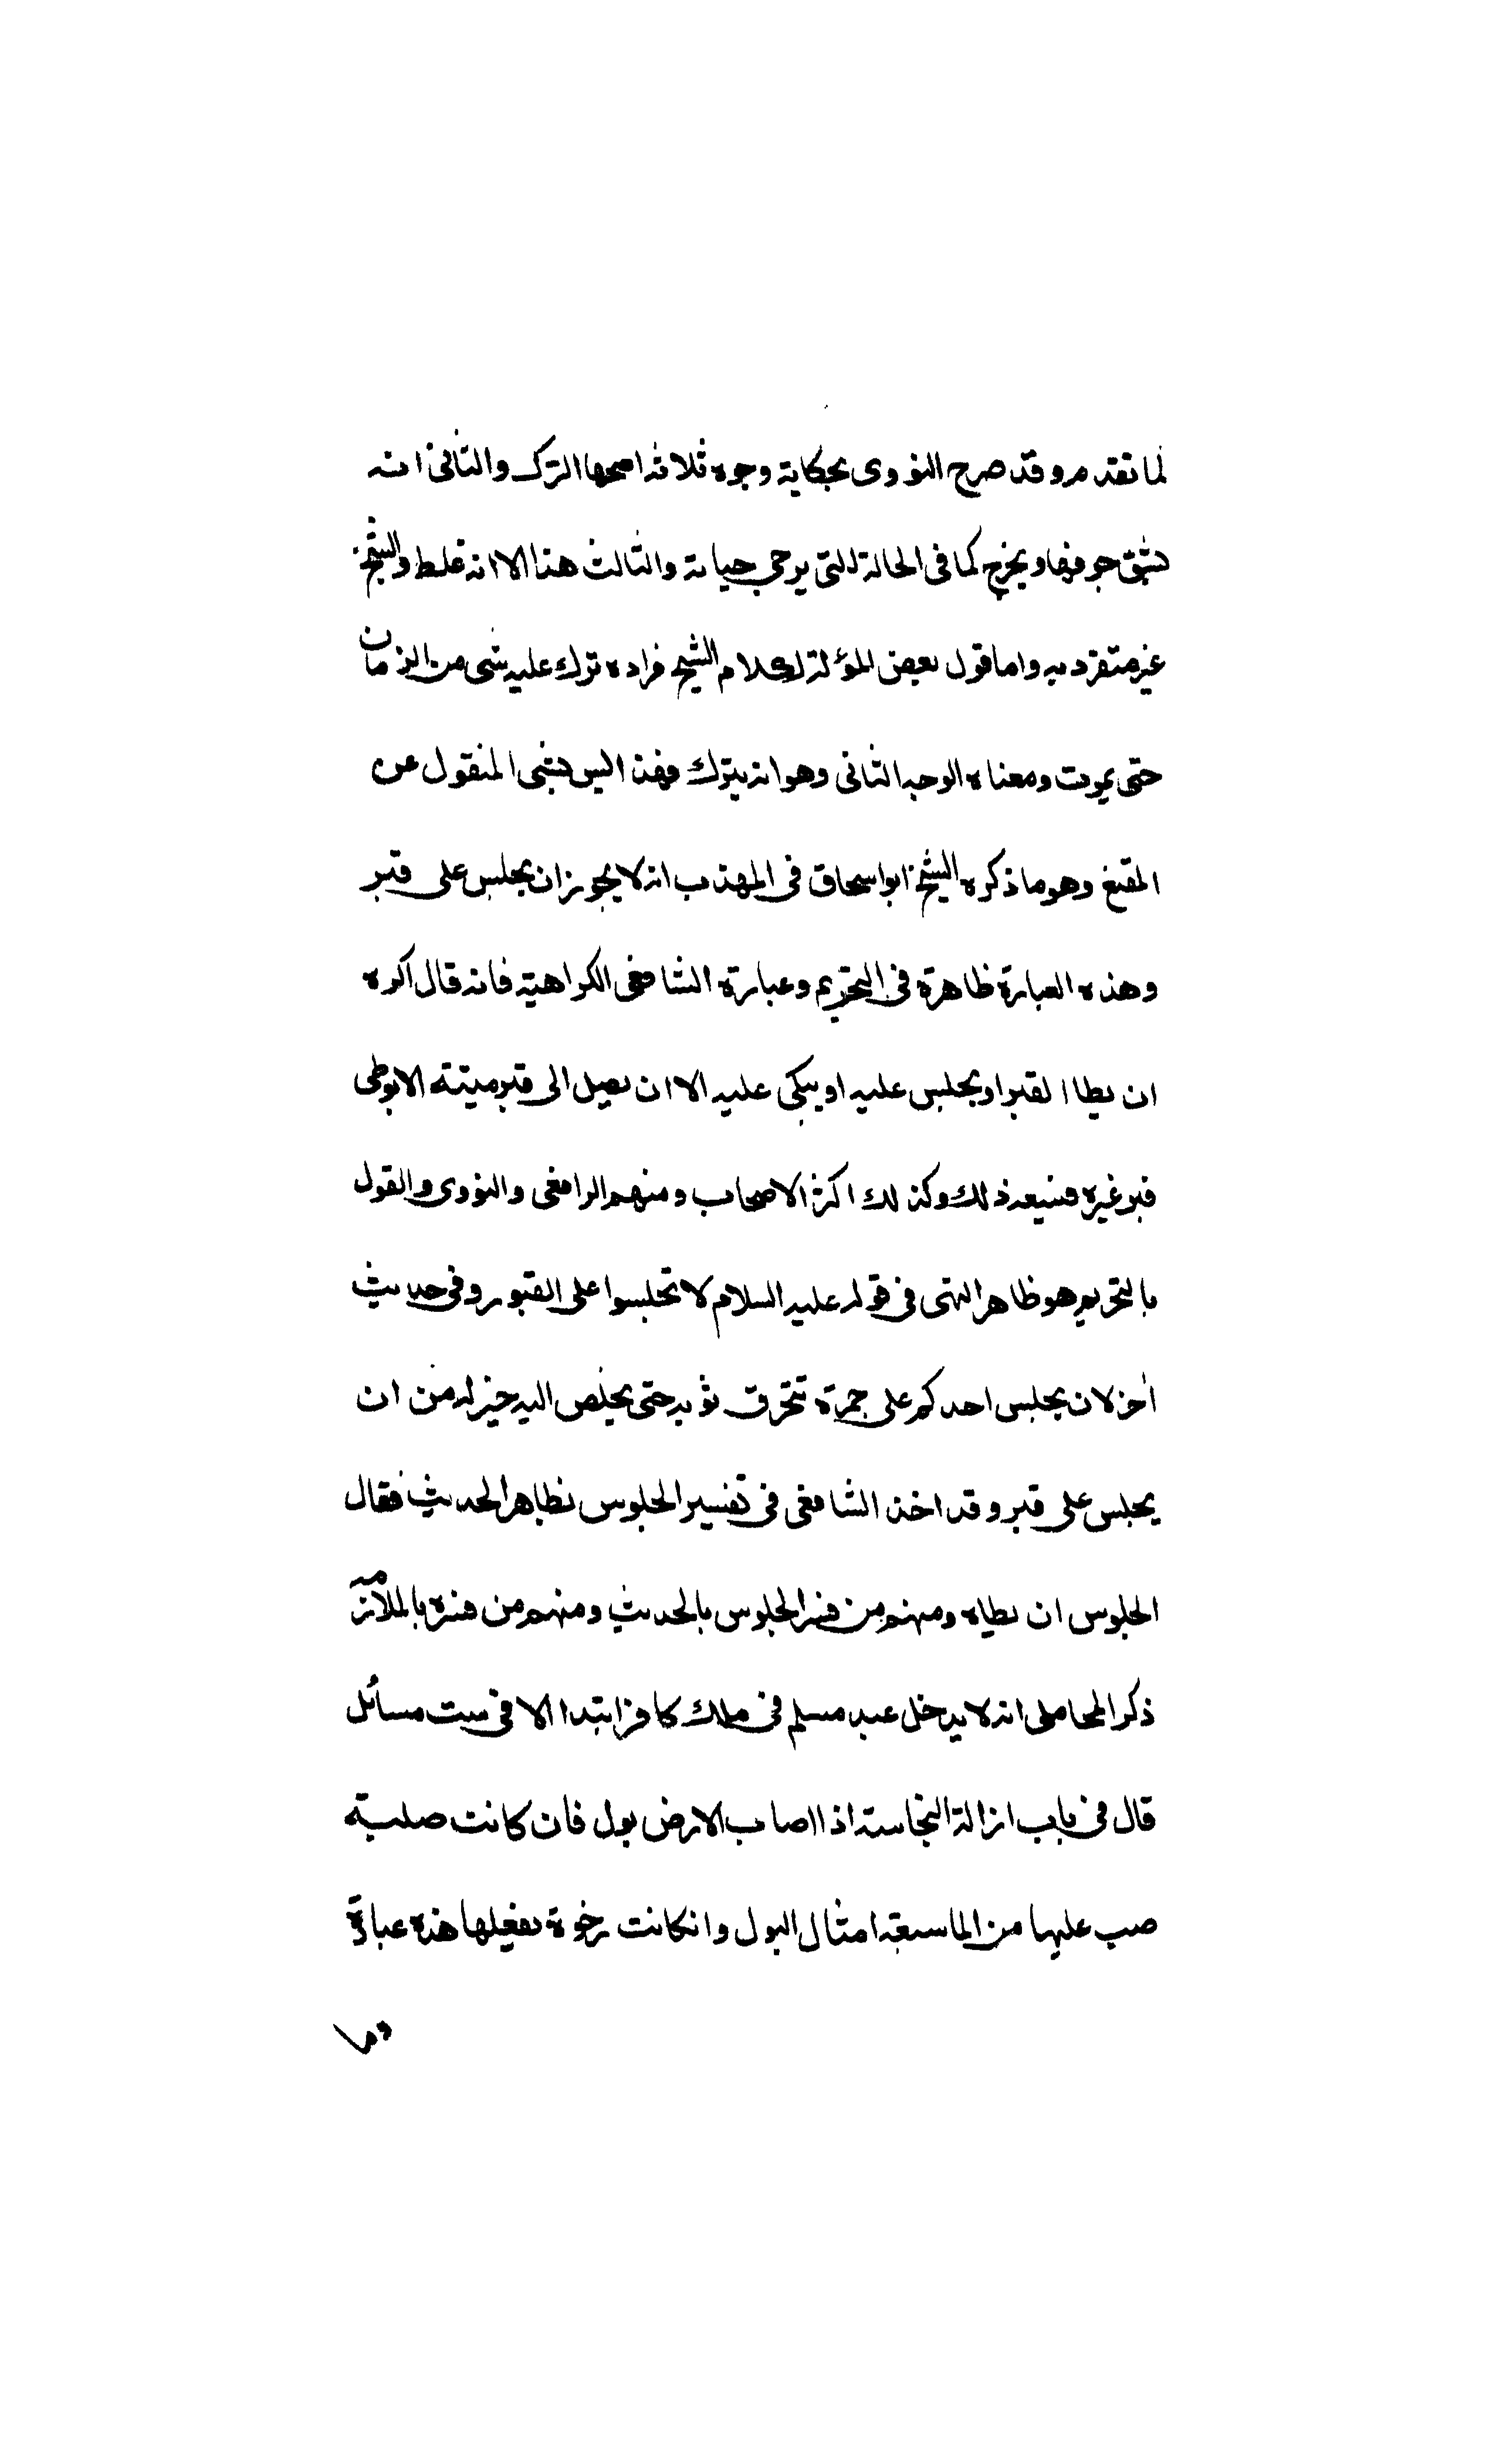 لما تقدم وقد صرح النووى بحكاية وجوه ثلاثة اصحها الترك والثانى انه
يشق جوفها ويخرج كما فى الحالة التى يرجى حياته والثالث هذا الا انه غلط والشيخ
غير متفرد به واما قول بعض المؤلة لكلام الشيخ فراده ترك عليه شى من الزمان
حتى يموت ومعناه الوجه الثانى وهو انه يترك فهذا ليس بشى المنقول عن
المقنع وهو ما ذكره الشيخ ابو اسحاق فى المهذب انه لا يجوز ان يجلس على قبر
وهذه العبارة ظاهرة فى التحريم وعبارة الشافعى الكراهية فانه قال اكره
ان يطا القبر او يجلس عليه او يتكى عليه الا ان يصل الى قبر ميته الا بوطى
قبر غيره فسيعه ذلك وكذلك اكثر الاصحاب ومنهم الرافعى والنووى والقول
بالتحريم هو ظاهر النهى فى قوله عليه السلام لا تجلسوا على القبور وفى حديث
اخر لان يجلس احدكم على جمرة تحرق ثوبه حتى يخلص اليه خير له من ان
يجلس على قبر وقد اخذ الشافعى فى تفسير الجلوس بظاهر الحديث فقال
الجلوس ان يطاه ومنهم من فسر الجلوس بالحديث ومنهم من فسره بالملازمه
ذكر المحاملى انه لا يدخل عبد مسلم فى ملك كافر ابتدا الا فى ست مسائل
قال فى باب ازالة النجاسة اذا اصاب الارض بول فان كانت صلبة
صب عليها من الما سبعة امثال البول وان كانت رخوة يغسلها هذه عبارة
وما